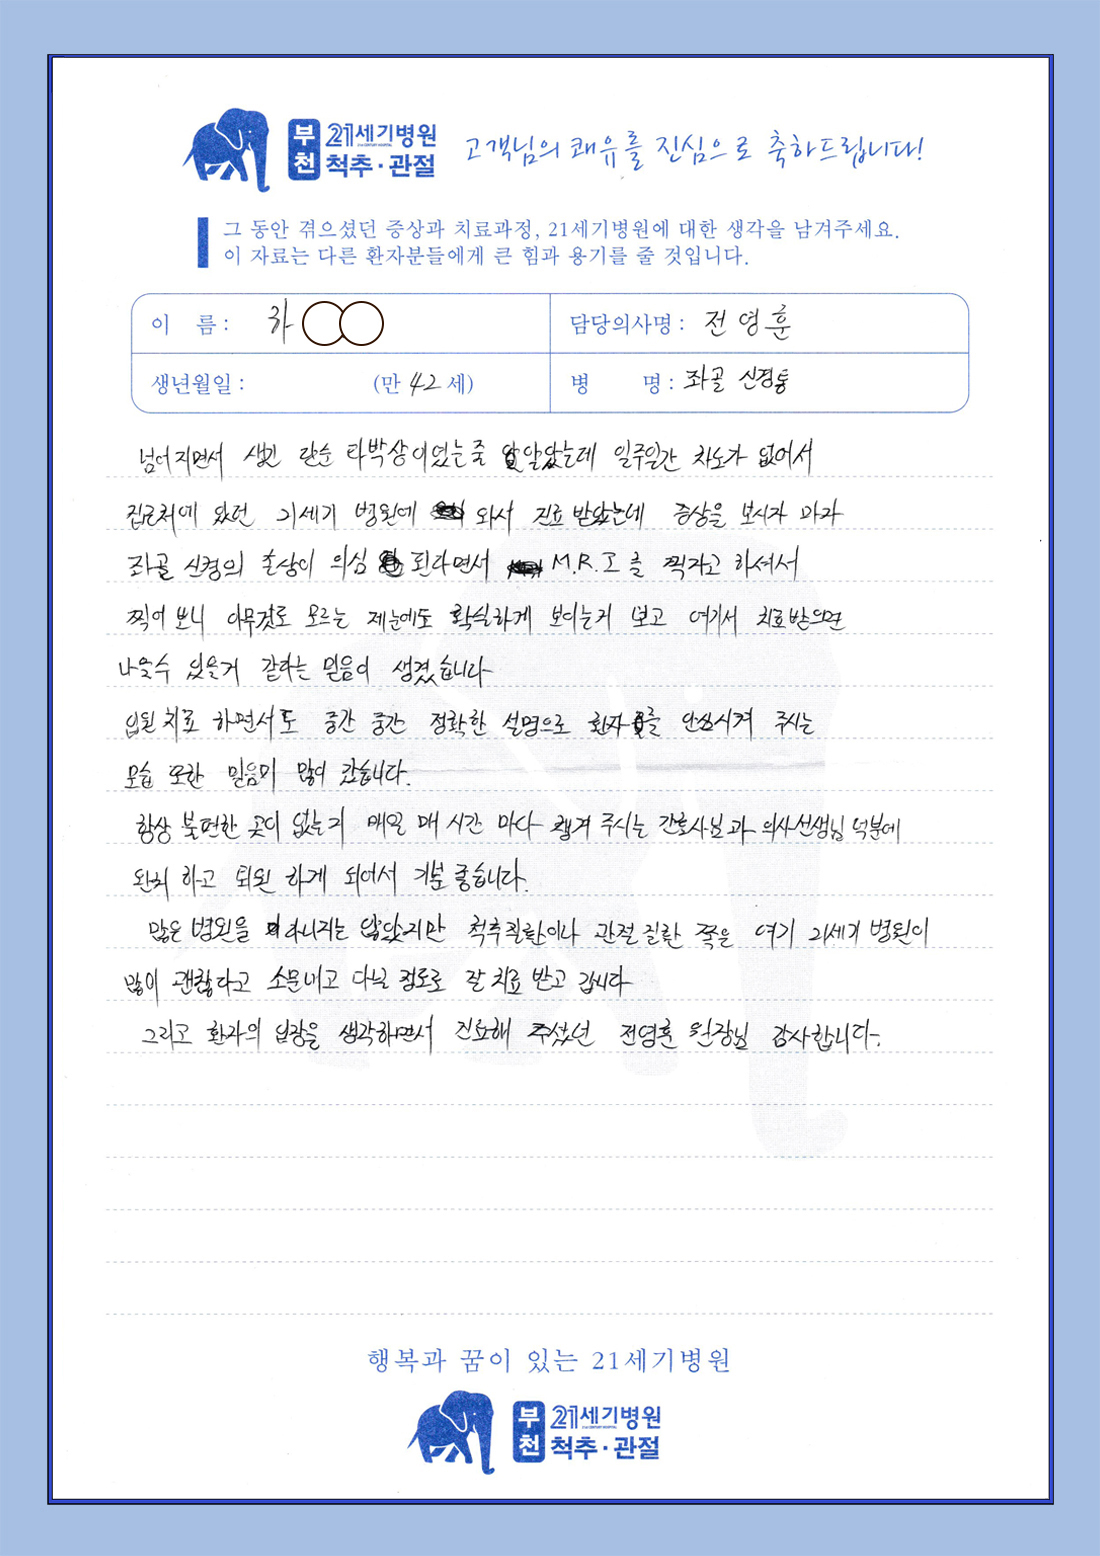 부천 21세기병원 척추·관절 고객님의 쾌유를 진심으로 축하드립니다!
그 동안 겪으셨던 증상과 치료과정, 21세기병원에 대한 생각을 남겨주세요.
이 자료는 다른 환자분들에게 큰 힘과 용기를 줄 것입니다.
이 름 : 하 담당의사명 : 전영훈
생년월일 : (만 42 세) 병 명 : 좌골 신경통
넘어지면서 생긴 단순 타박상이었는줄 알았는데 일주일간 차도가 없어서
집근처에 있던 21세기 병원에 와서 진료 받았는데 증상을 보시자 마자
좌골 신경의 손상이 의심 된다면서 M.R.I 를 찍자고 하셔서
찍어 보니 아무것도 모르는 제눈에도 확실하게 보이는거 보고 여기서 치료받으면
나을수 있을거 같다는 믿음이 생겼습니다
입원 치료 하면서도 중간 중간 정확한 설명으로 환자를 안심시켜 주시는
모습 또한 믿음이 많이 갔습니다.
항상 불편한 곳이 없는지 매일 매 시간 마다 챙겨 주시는 간호사님과 의사선생님 덕분에
완치 하고 퇴원 하게 되어서 기분 좋습니다.
많은 병원을 다니지는 않았지만 척추질환이나 관절 질환 쪽은 여기 21세기 병원이
많이 괜찮다고 소문내고 다닐 정도로 잘 치료 받고 갑니다
그리고 환자의 입장을 생각하면서 진료해 주셨던 전영훈 원장님 감사합니다.
행복과 꿈이 있는 21세기병원
부천 21세기병원 척추·관절